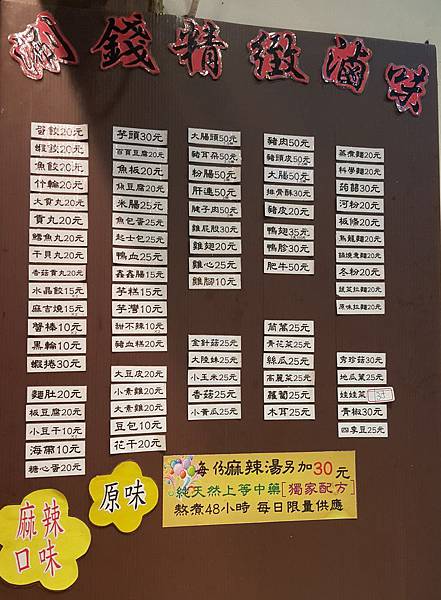 涮錢精緻滷味
蛋餃20元
蝦餃20元
魚餃20元
竹輪20元
大貢丸20元
貢丸20元
鱈魚丸20元
干貝丸20元
香菇貢丸20元
水晶餃15元
麻吉燒15元
蟹棒10元
黑輪10元
蝦捲30元
麵肚20元
板豆腐20元
小豆干10元
海帶10元
糖心蛋20元
芋頭30元
百頁豆腐20元
魚板20元
魚豆腐20元
米腸25元
魚包蛋25元
起士包25元
鴨血25元
鑫鑫腸15元
芋糕15元
芋灣10元
甜不辣10元
豬血糕20元
大豆皮20元
小素雞20元
大素雞20元
豆包10元
花干20元
大腸頭50元
豬耳朵50元
粉腸50元
肝連50元
腱子肉50元
雞屁股30元
雞翅20元
雞心25元
雞腳10元
金針菇25元
大陸妹25元
小玉米25元
香菇25元
小黃瓜25元
豬肉50元
豬頭皮50元
大腸50元
排骨酥30元
豬皮20元
鴨翅35元
鴨胗30元
肥牛50元
茼蒿25元
青花菜25元
絲瓜25元
高麗菜25元
蘿蔔25元
木耳25元
蒸煮麵20元
科學麵20元
蒟蒻30元
河粉20元
板條20元
烏龍麵20元
鍋燒意麵20元
冬粉20元
蔬菜拉麵20元
原味拉麵20元
秀珍菇30元
地瓜葉25元
娃娃菜
青椒30元
四季豆25元
每份麻辣湯另加30元
純天然上等中藥[獨家配方]
熬煮48小時 每日限量供應
原味
麻辣
口味